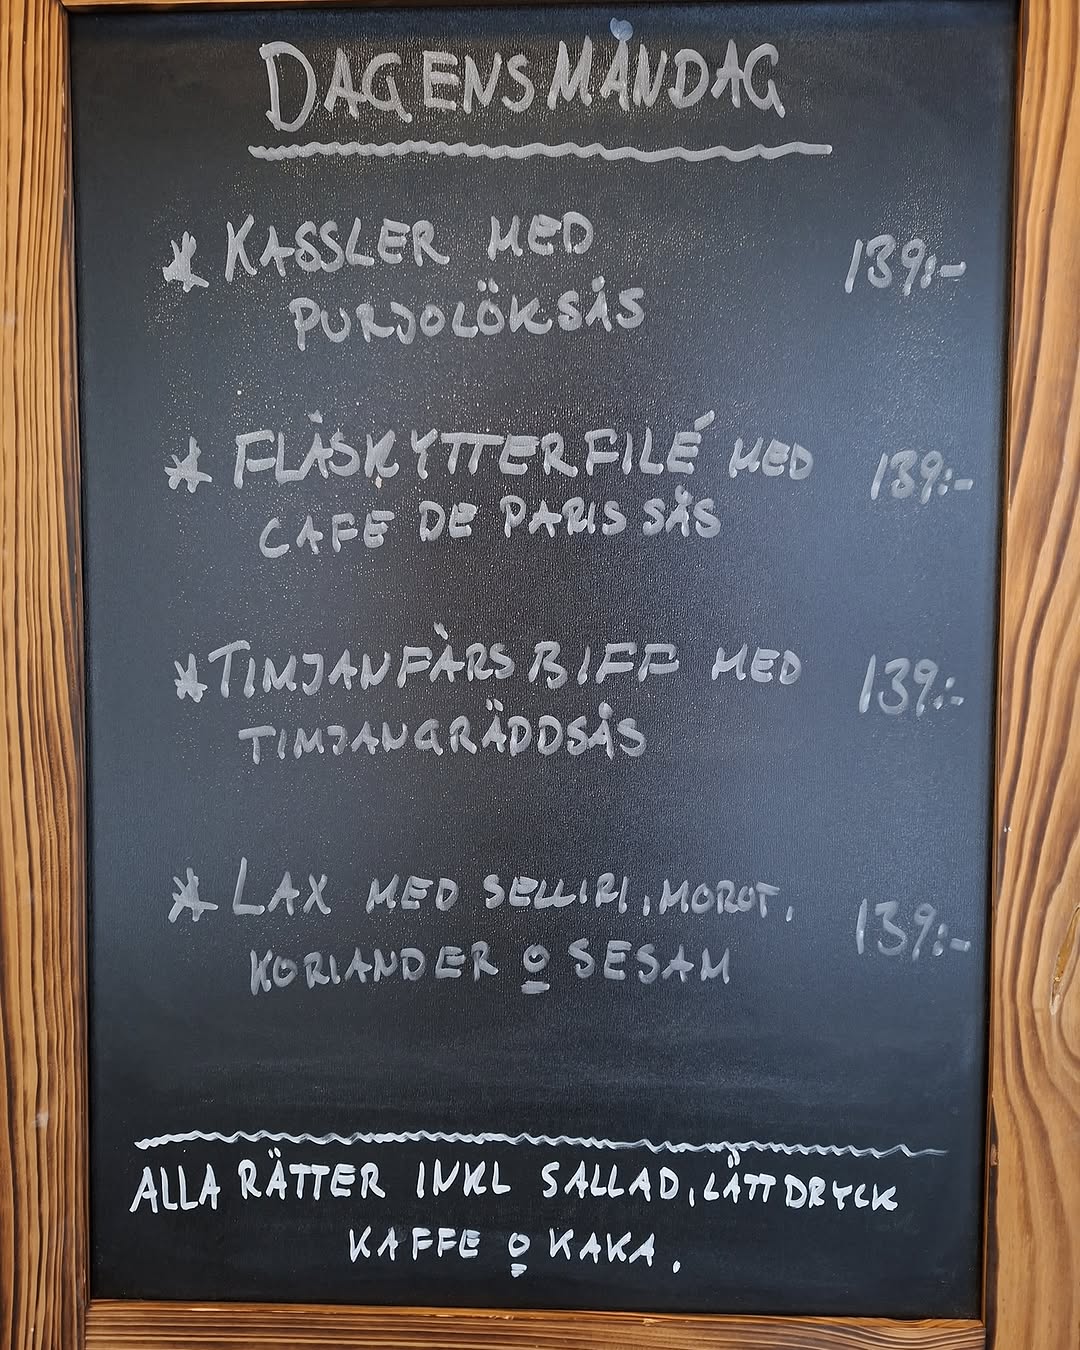 DAGENS MÅNDAG
* KASSLER MED 139:-
PURJOLÖKSÅS
* FLÄSKYTTERFILÉ MED 139:-
CAFE DE PARIS SÅS
* TIMJANFÄRSBIFF MED 139:-
TIMJANGRÄDDSÅS
* LAX MED SELLIRI, MOROT, 139:-
KORIANDER o SESAM
ALLA RÄTTER INKL SALLAD, LÄTTDRYCK
KAFFE o KAKA.